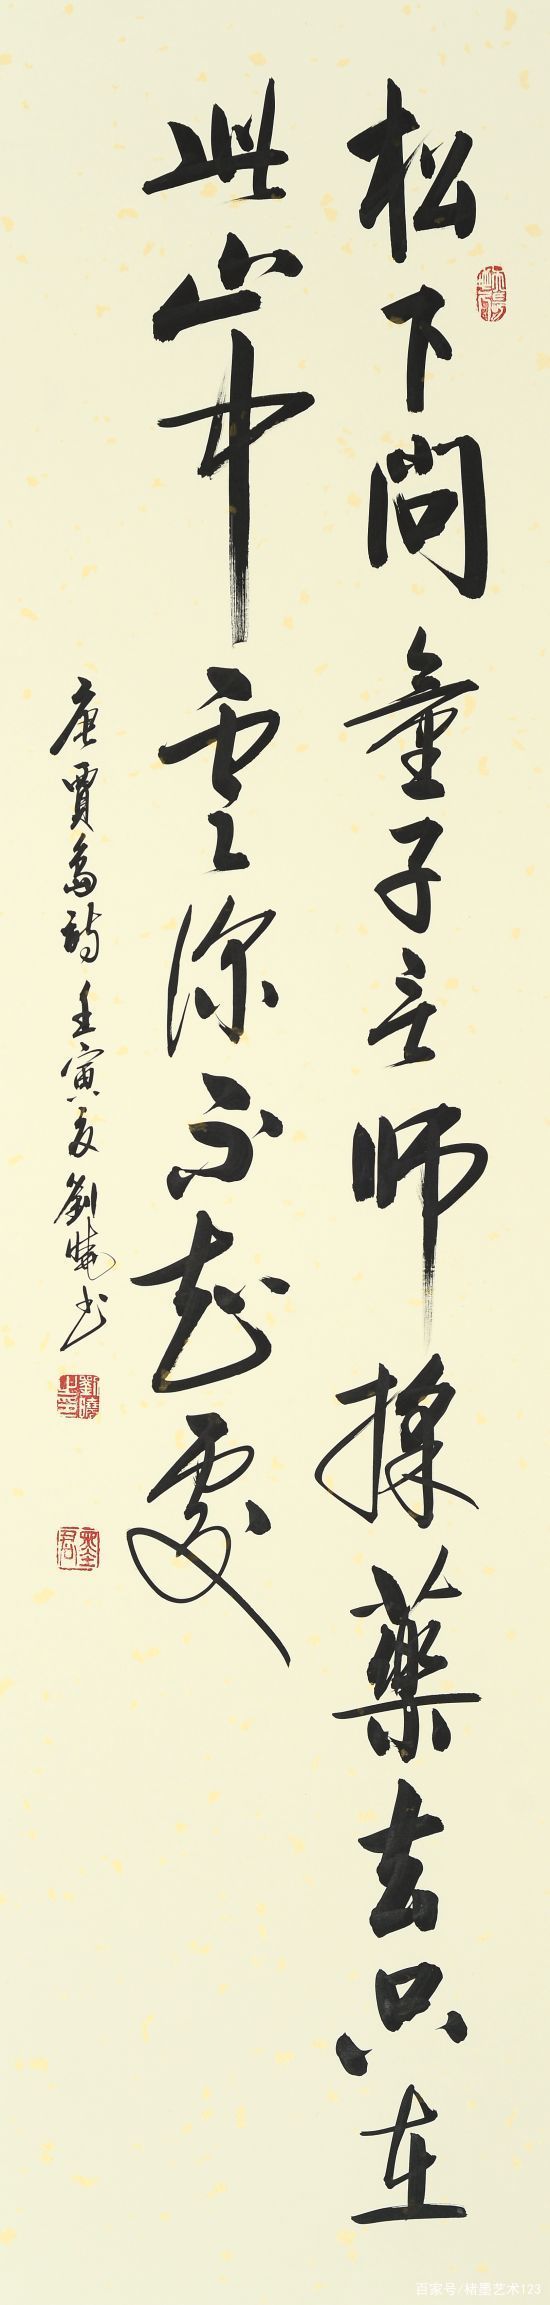 松下問童子言師採藥去只在
此山中雲深不知處
唐賈島詩壬寅夏劉曉书
劉曉之印
百家号/楮墨艺术123